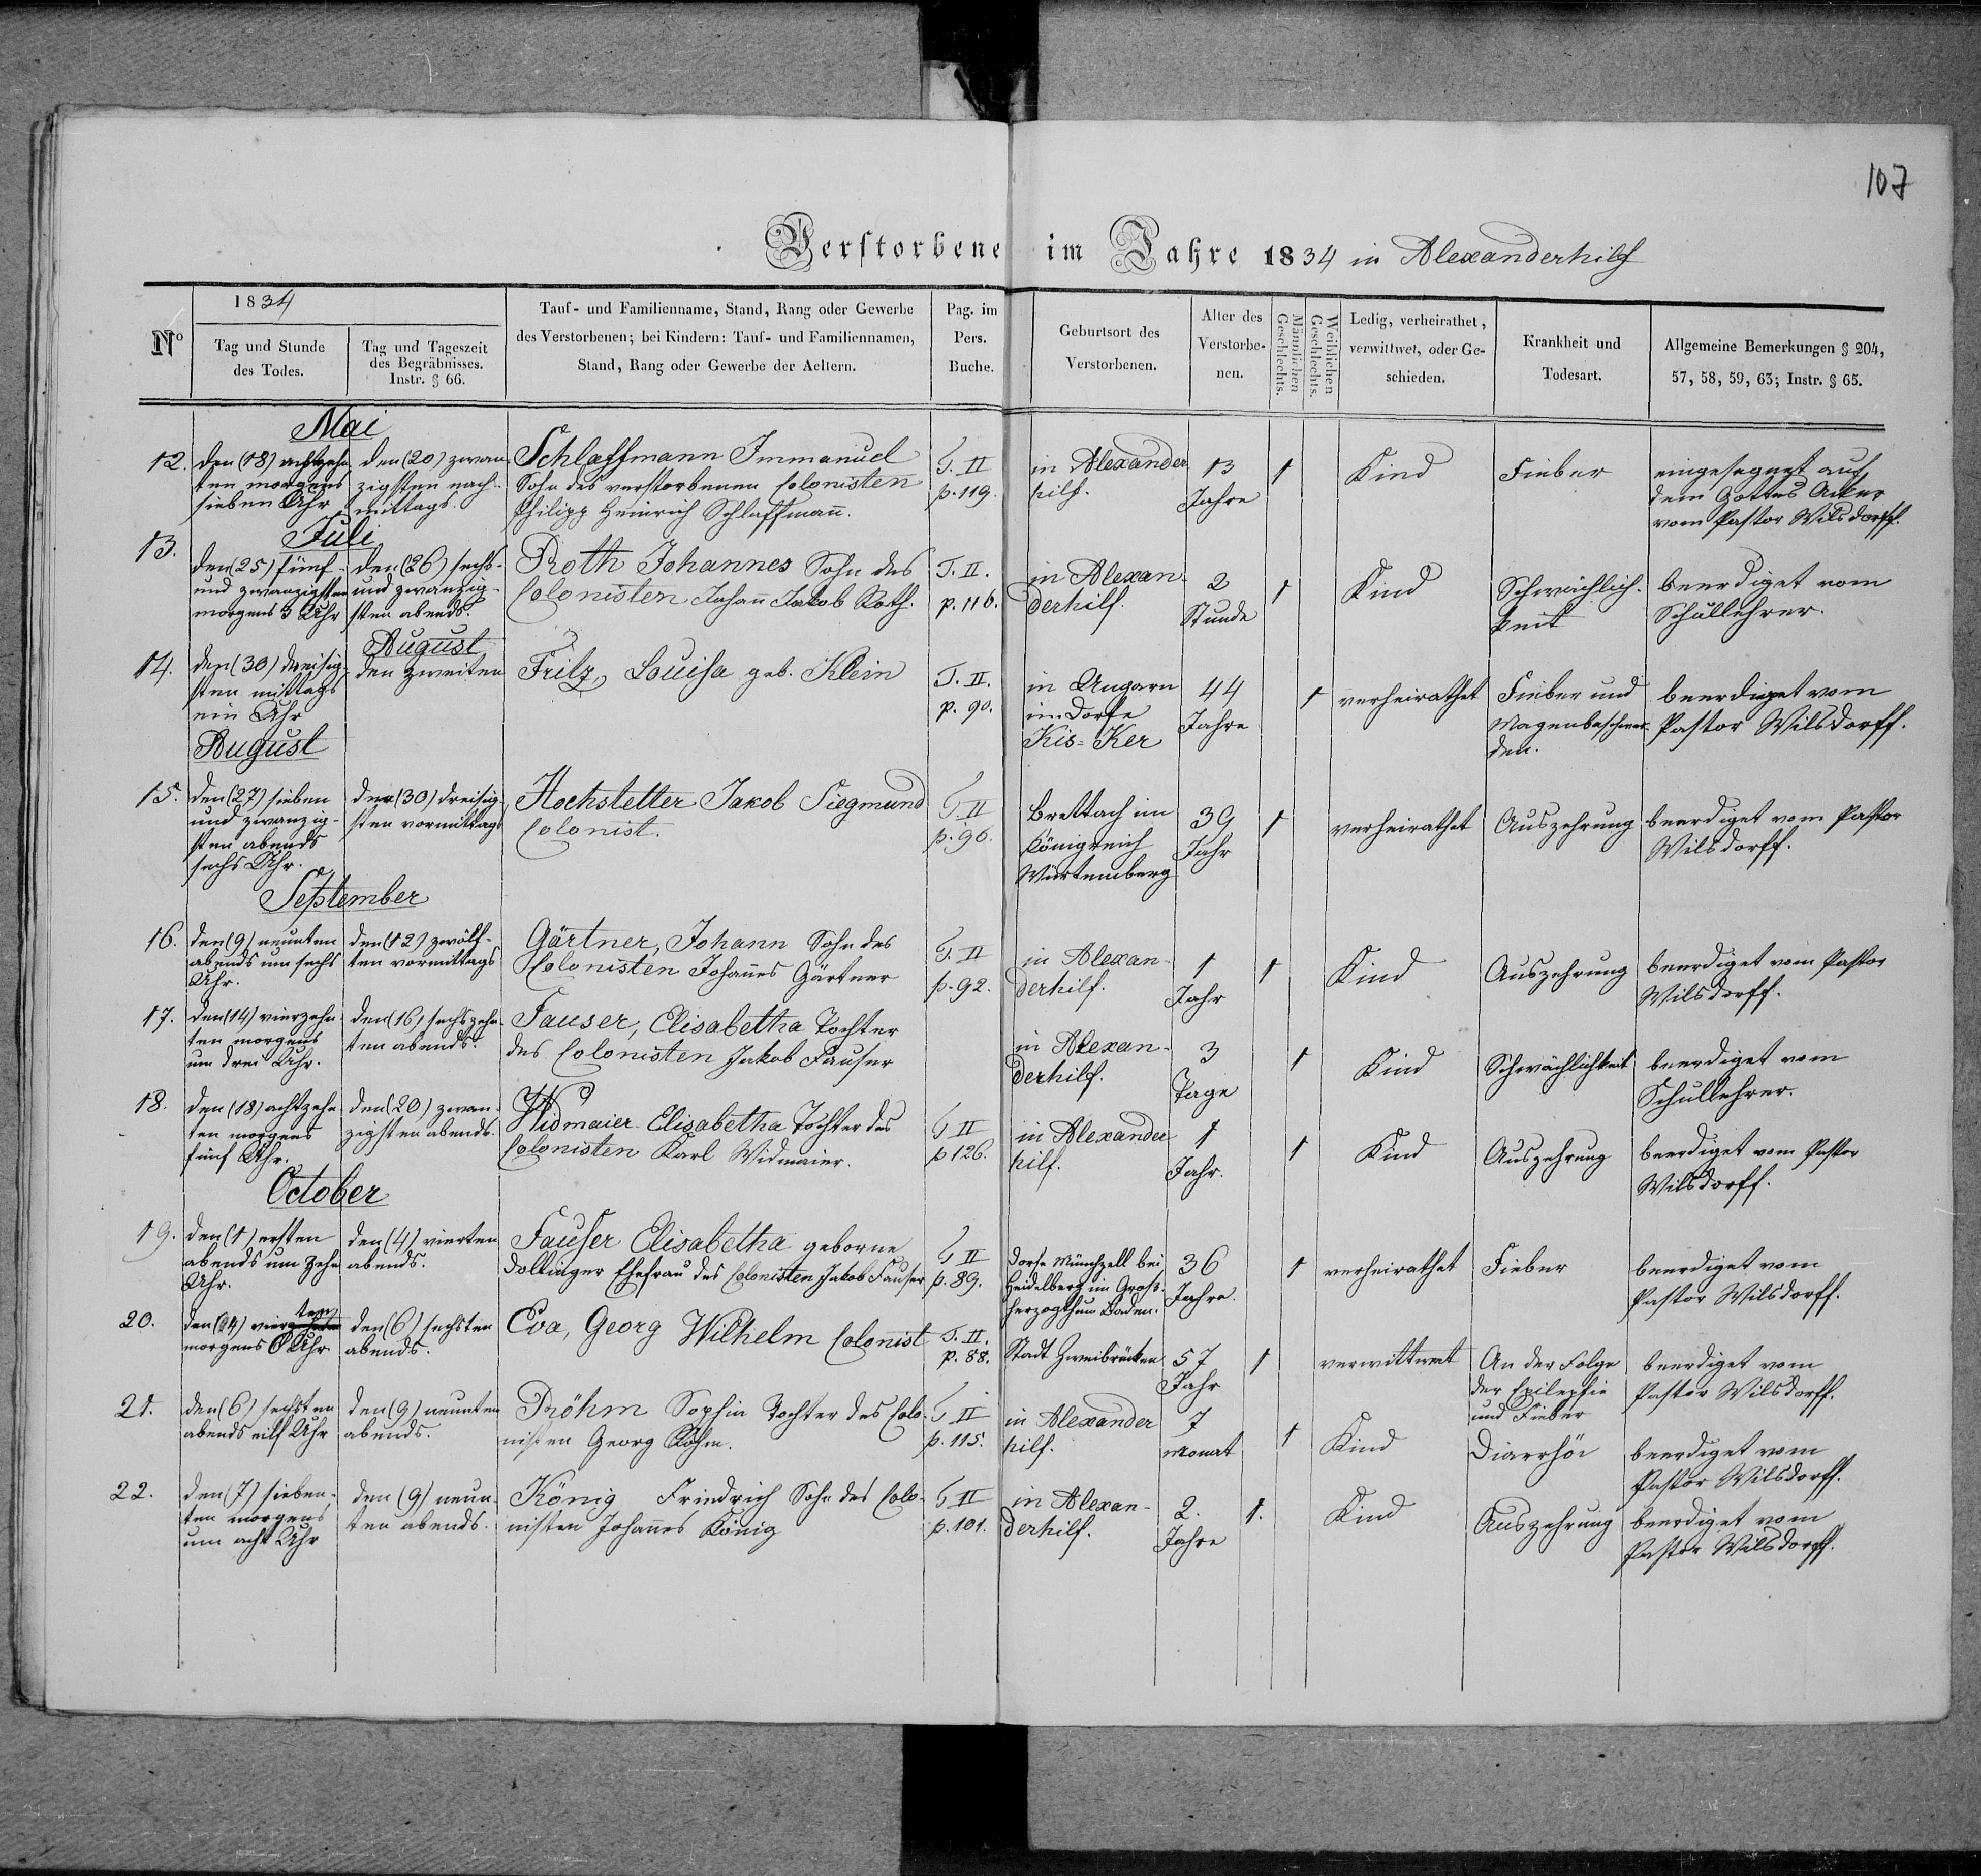 107
Verstorbene im Jahre 1834 in Alexanderhilf
1834
No
Tag und Stunde
des Todes.
Tag und Tageszeit
des Begräbnisses.
Instr. § 66.
Tauf- und Familienname, Stand, Rang oder Gewerbe
des Verstorbenen; bei Kindern: Tauf- und Familiennamen,
Stand, Rang oder Gewerbe der Aeltern.
Pag. im
Pers.
Buche.
Geburtsort des
Verstorbenen.
Alter des
Verstorbe-
nen.
Männlichen
Geschlechts.
Weiblichen
Geschlechts.
Ledig, verheirathet,
verwittwet, oder Ge-
schieden.
Krankheit und
Todesart.
Allgemeine Bemerkungen § 204,
57, 58, 59, 63; Instr. § 65.
Mai
12.
den (18) achtzehn
ten morgens
sieben Uhr
den (20) zwan-
zigsten nach-
mittags.
Schlaffmann Immanuel
Sohn des verstorbenen Colonisten
Philipp Heinrich Schlaffmann.
T. II
p. 119.
in Alexander
hilf.
13
Jahre
1
Kind
Fieber
eingesegnet auf
dem Gottes Acker
vom Pastor Wilsdorff.
Juli
13.
den (25) fünf-
und zwanzigsten
morgens 3 Uhr
den (26) sechs-
und zwanzig-
sten abends.
Roth Johannes Sohn des
Colonisten Johann Jakob Roth.
T. II.
p. 116.
in Alexan-
derhilf.
2
Stunde
1
Kind
Schwächlich-
keit
beerdiget vom
Schullehrer.
14.
den (30) dreisig-
sten mittags
ein Uhr
August
den zweiten
Fritz, Louisa geb. Klein
T. II.
p. 90.
in Ungarn
im Dorfe
Kis-Ker
44
Jahre
1
verheirathet
Fieber und
Magenbeschwer-
den.
beerdiget vom
Pastor Wilsdorff.
August
15.
den (27) sieben
und zwanzig-
sten abends
sechs Uhr.
den (30) dreisig-
sten vormittags
Hochstetter Jakob Siegmund
Colonist.
T. II
p. 96.
Brettach im
Königreich
Würtemberg
39
Jahr
1
verheirathet
Auszehrung
beerdiget vom Pastor
Wilsdorff.
September
16.
den (9) neunten
abends um sechs
Uhr.
den (12) zwölf-
ten vormittags
Gärtner, Johann Sohn des
Colonisten Johannes Gärtner
T. II
p. 92.
in Alexan-
derhilf.
1
Jahr
1
Kind
Auszehrung
beerdiget vom Pastor
Wilsdorff.
17.
den (14) vierzehn
ten morgens
um drei Uhr.
den (16) sechszehn-
ten abends.
Fauser, Elisabetha Tochter
des Colonisten Jakob Fauser
in Alexan-
derhilf.
3
Tage
1
Kind
Schwächlichkeit
beerdiget vom
Schullehrer.
18.
den (18) achtzehn
ten morgens
fünf Uhr.
den (20) zwan-
zigsten abends.
Widmaier Elisabetha Tochter des
Colonisten Karl Widmaier.
T. II
p 126.
in Alexander
hilf.
1
Jahr.
1
Kind
Auszehrung
beerdiget vom Pastor
Wilsdorff.
October
19.
den (1) ersten
abends um zehn
Uhr.
den (4) vierten
abends.
Fauser Elisabetha geborne
Dollinger Ehefrau des Colonisten Jakob Fauser
T. II
p. 89.
Dorfe Münchzell bei
Heidelberg im Gros-
herzogthum Baden.
36
Jahre.
1
verheirathet
Fieber
beerdiget vom
Pastor Wilsdorff.
20.
den (4) vierten
morgens 6 Uhr.
den (6) sechsten
abends.
Eva, Georg Wilhelm Colonist
T. II.
p. 88.
Stadt Zweibrücken
57
Jahr
1
verwittwet
An der Folge
der Epilepsie
und Fieber
beerdiget vom
Pastor Wilsdorff.
21.
den (6) sechsten
abends eilf Uhr
den (9) neunten
abends.
Röhm Sophia Tochter des Colo-
nisten Georg Röhm.
T. II
p. 115.
in Alexander
hilf.
7
Monat
1
Kind
Diarrhöe
beerdiget vom
Pastor Wilsdorff.
22.
den (7) sieben-
ten morgens
um acht Uhr
den (9) neun-
ten abends.
König Friedrich Sohn des Colo-
nisten Johannes König
T. II
p. 101.
in Alexan-
derhilf.
2.
Jahre
1.
Kind
Auszehrung
beerdiget vom
Pastor Wilsdorff.